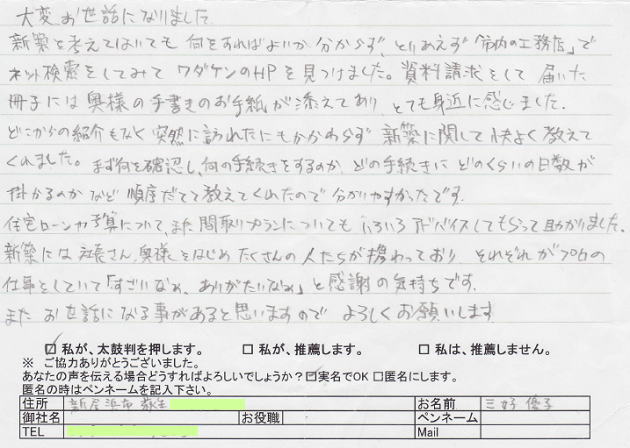 大変お世話になりました。
新築を考えてはいても 何をすればよいか 分からず、とりあえず「市内の工務店」で
ネット検索をしてみて ワダケンのHPを見つけました。資料請求をして 届いた
冊子には奥様の手書きのお手紙が添えてあり、とても身近に感じました。
どこからの紹介もなく 突然に訪れたにもかかわらず 新築に関して快よく教えて
くれました。まず何を確認し、何の手続きをするのか、どの手続きに どのくらいの日数が
掛かるのかなど 順序だてて教えてくれたので 分かりやすかったです。
住宅ローンや予算について、また 間取りプランについても いろいろ アドバイスしてもらって助かりました。
新築には 社長さん、奥様をはじめ たくさんの 人たちが携わっており それぞれがプロの
仕事をしていて「すごいなぁ、ありがたいなぁ」と感謝の気持ちです。
また お世話になる事があると思いますので よろしくお願いします
☑ 私が、太鼓判を押します。 ☐ 私が、推薦します。 ☐ 私は、推薦しません。
※ ご協力ありがとうございました。
あなたの声を伝える場合どうすればよろしいでしょうか? ☑実名でOK ☐匿名にします。
匿名の時はペンネームを記入下さい。
住所 新居浜市 萩生 お名前 三好 優子
御社名 お役職 ペンネーム
TEL Mail